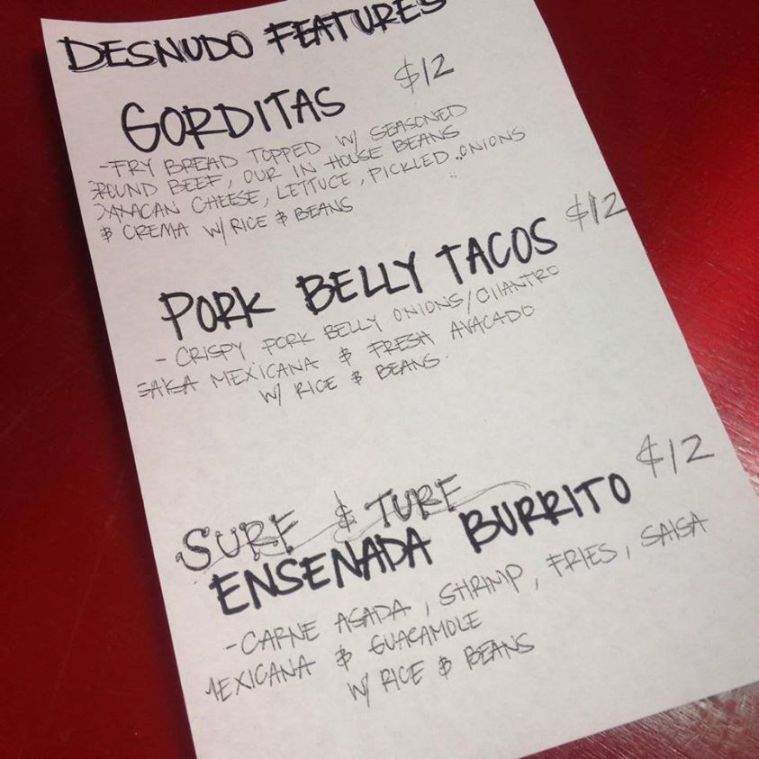 DESNUDO FEATURES
GORDITAS $12
-FRY BREAD TOPPED W/ SEASONED
GROUND BEEF, OUR IN HOUSE BEANS
OAXACAN CHEESE, LETTUCE, PICKLED ONIONS
& CREMA W/ RICE & BEANS
PORK BELLY TACOS $12
- CRISPY PORK BELLY ONIONS/CILANTRO
SALSA MEXICANA & FRESH AVACADO
W/ RICE & BEANS
SURF & TURF
ENSENADA BURRITO $12
-CARNE ASADA, SHRIMP, FRIES, SALSA
MEXICANA & GUACAMOLE
W/ RICE & BEANS